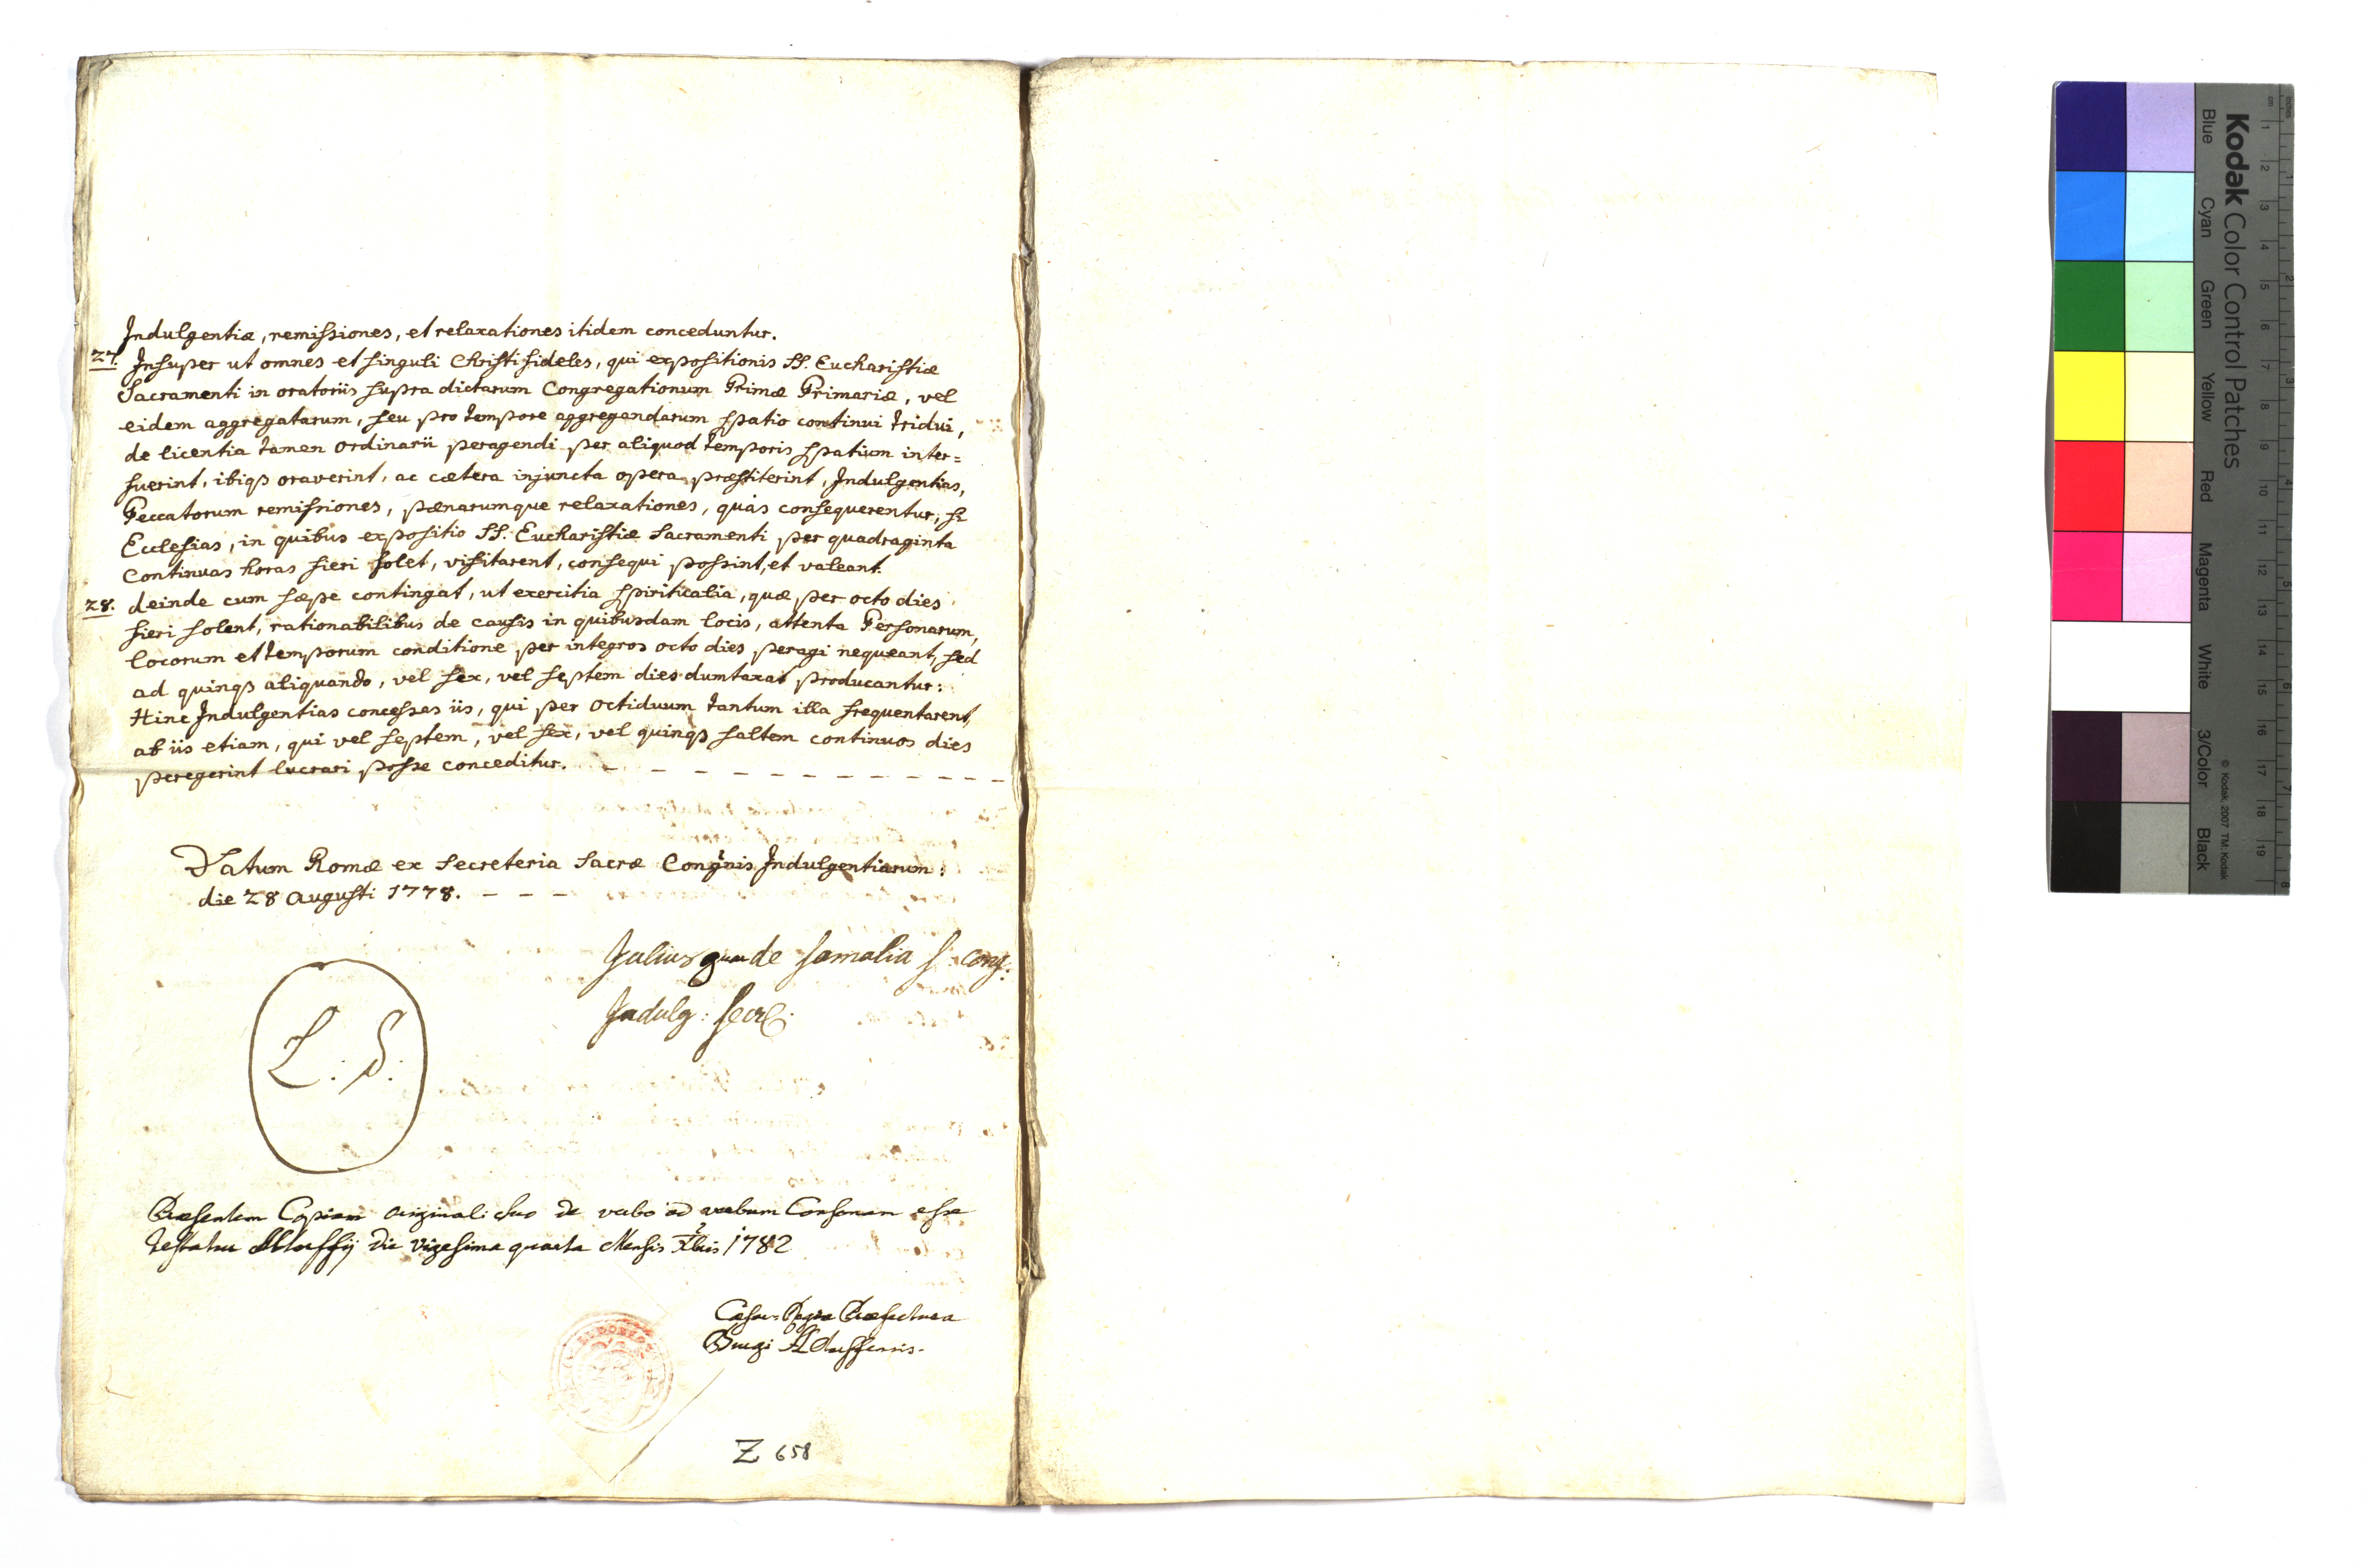 Indulgentiæ, remissiones, et relaxationes itidem conceduntur.
27. Insuper ut omnes et singuli Christi fideles, qui expositionis SS. Eucharistiæ
Sacramenti in oratoriis supra dictarum Congregationum Primæ Primariæ, vel
eidem aggregatarum, seu pro tempore aggregandarum spatio continui tridui,
de licentia tamen ordinarii peragendi per aliquod temporis spatium inter=
fuerint, ibiqs oraverint, ac cætera injuncta opera præstiterint, Indulgentias,
Peccatorum remissiones, pænarumque relaxationes, quas consequerentur, si
Ecclesias, in quibus expositio SS. Eucharistiæ Sacramenti per quadraginta
Continuas horas fieri solet, visitarent, consequi possint, et valeant.
28. deinde cum sæpe contingat, ut exercitia spiriticalia, quæ per octo dies
fieri solent, rationabilibus de causis in quibusdam locis, attenta Personarum,
locorum et temporum conditione per integros octo dies peragi nequeant, sed
ad quinqs aliquando, vel sex, vel septem dies dumtaxat producantur:
Hinc Indulgentias concessas iis, qui per octiduum tantum illa frequentarent,
ab iis etiam, qui vel septem, vel sex, vel quinqs saltem continuos dies
peregerint lucrari posse conceditur. - - - - - - - - - -
Datum Romæ ex Secreteria Sacræ Congnis Indulgentiarum:
die 28 Augusti 1778. - - -
Julius de Somalia S. Cong:
Indulg: Secr.
L. S.
Præsentem Copiam originali suo de verbo ad verbum Consonam esse
testatur die vigesima quarta Mensis Xbris 1782
Cæsar. Regia Præfectura
Z 658
Kodak Color Control Patches
Blue Cyan Green Yellow Red Magenta White 3/Color Black
© Kodak, 2007 TM: Kodak
inches 1 2 3 4 5 6 7 8
cm 1 2 3 4 5 6 7 8 9 10 11 12 13 14 15 16 17 18 19